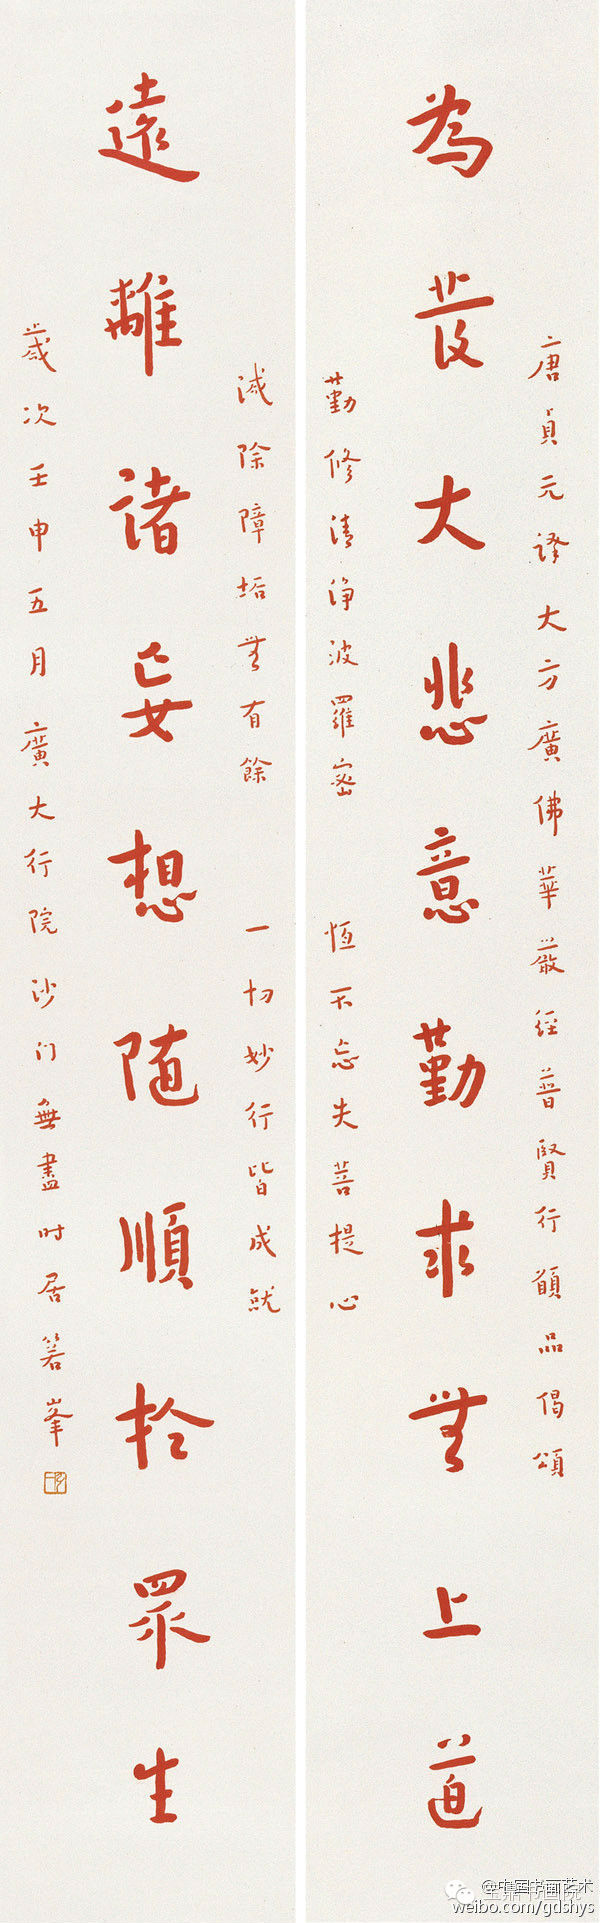 唐貞元譯大方廣佛華嚴經普賢行願品偈頌
為發大悲意勤求無上道
勤修清淨波羅密 恆不忘失菩提心
滅除障垢無有餘 一切妙行皆成就
遠離諸妄想隨順於眾生
歲次壬申五月廣大行院沙门無盡时居箬峯
@中国书画艺术
weibo.com/gdshys